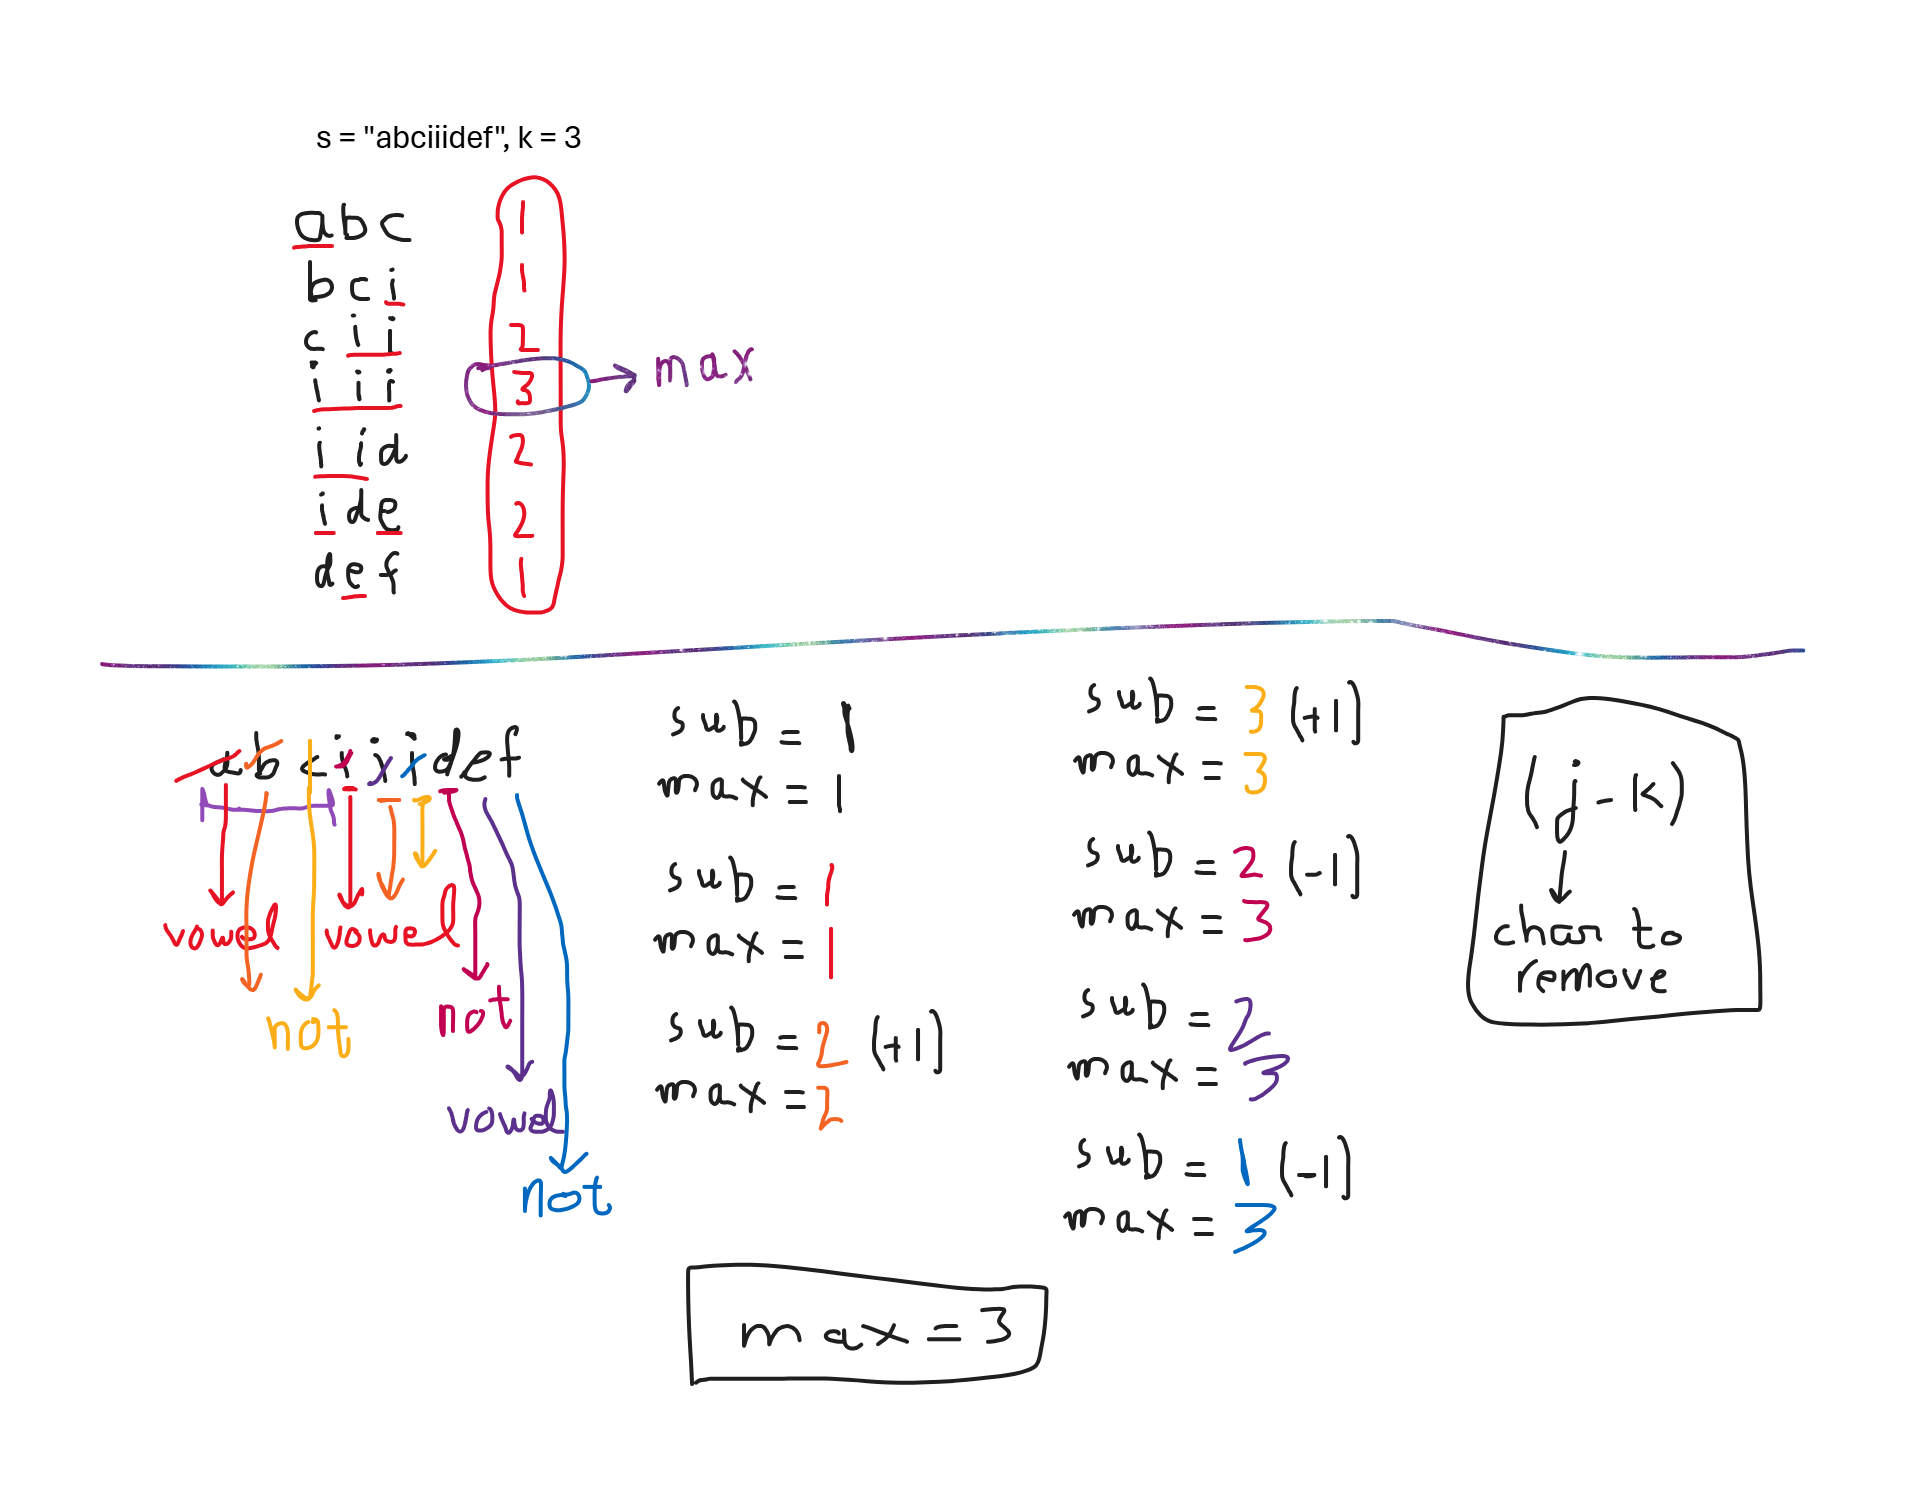 s = "abciiidef", k = 3
abc 1
bci 1
cii 2
iii 3 → max
iid 2
ide 2
def 1
abciiidef
vowel vowel
not
not
vowel
not
sub = 1
max = 1
sub = 1
max = 1
sub = 2 (+1)
max = 2
sub = 3 (+1)
max = 3
sub = 2 (-1)
max = 3
sub = 2
max = 3
sub = 1 (-1)
max = 3
(j-k)
char to
remove
max = 3